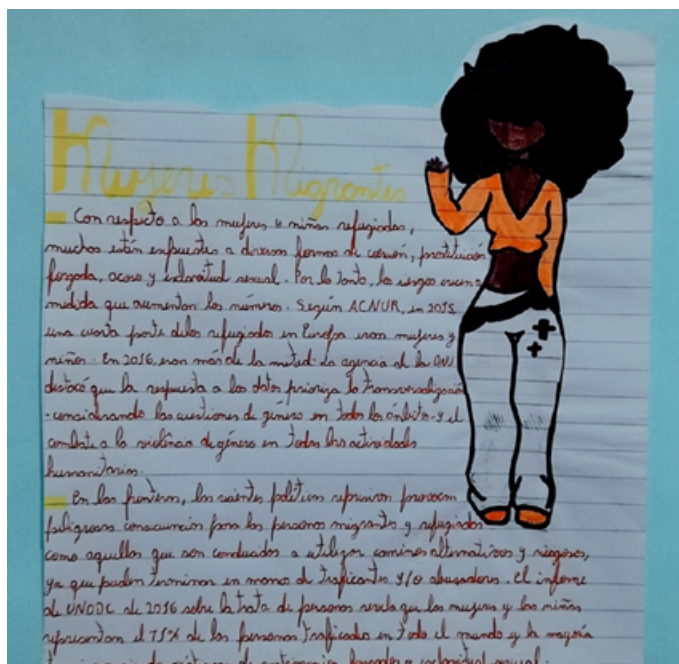 Mujeres Migrantes
Con respecto a las mujeres y niñas refugiadas,
muchas están expuestas a diversas formas de coerción, prostitución
forzada, acoso y esclavitud sexual. Por lo tanto, los riesgos crecen a
medida que aumentan los números. Según ACNUR, en 2015
una cuarta parte de los refugiados en Europa eran mujeres y
niñas. En 2016, eran más de la mitad. La agencia de la ONU
destacó que la respuesta a los datos prioriza la transversalización
-considerando las cuestiones de género en todos los ámbitos- y el
combate a la violencia de género en todas las actividades
humanitarias.
En las fronteras, las políticas represivas provocan
peligrosas consecuencias para las personas migrantes y refugiadas
como aquellas que son conducidas a utilizar caminos alternativos y riesgosos,
ya que pueden terminar en manos de traficantes y/o abusadores. El informe
de UNODC de 2016 sobre la trata de personas revela que las mujeres y las niñas
representan el 71% de las personas traficadas en todo el mundo y la mayoría